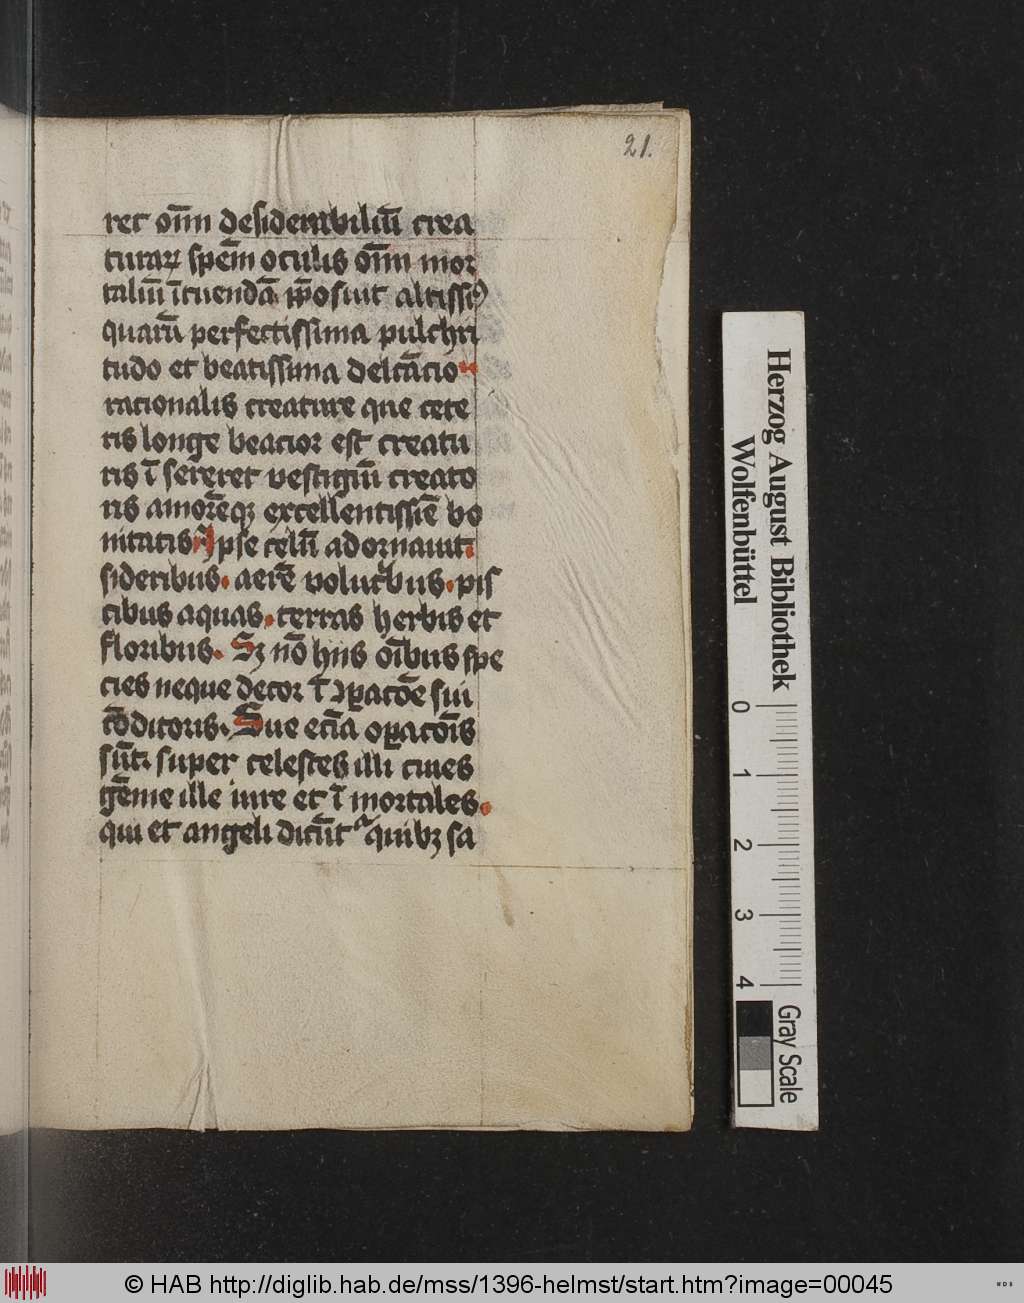 21.
ret om̅i desiderabiliu̅ crea
turaꝝ spe̅m oculis om̅i mor
taliu̅ i̅tuenda̅ p̅posuit altissi⁹
quaru̅ perfectissima pulchri
tudo et beatissima delc̅acio
racionalis creature que cete
ris longe beacior est creatu
ris i̅ sereret vestigiu̅ creato
ris amore̅qꝫ excellentissie̅ bo
nitatis Ipse celu̅ adornauit.
sideribus. aere̅ volucͥbus. pis
cibus aquas. terras herbis et
floribus. Sꝫ no̅ hiis oi̅bus spe
cies neque decor i̅ ꝯꝑaco̅e sui
co̅ditoris. Sue ecia̅ oꝑaco̅is
su̅t. super celestes illi ciues
ge̅me ille iure et i̅ mortales.
qui et angeli dicu̅t᷑ quibꝫ sa
Herzog August Bibliothek
Wolfenbüttel
0 1 2 3 4
Gray Scale
© HAB http://diglib.hab.de/mss/1396-helmst/start.htm?image=00045
WDB